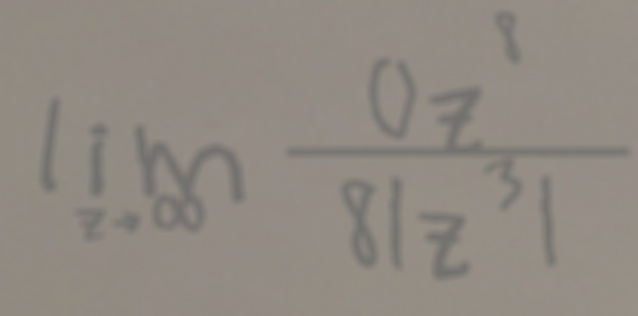 \lim_{z \to \infty} \frac{0z^8}{8|z^3|}